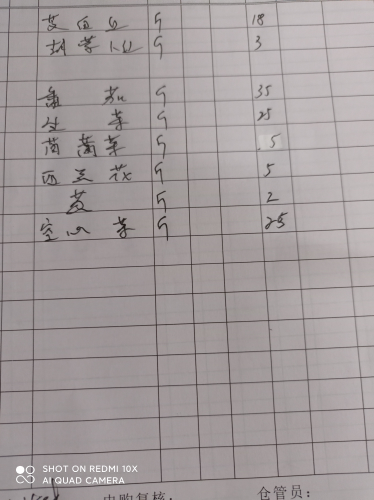 胡萝卜 斤 3
番茄 斤 35
生菜 斤 25
茼蒿菜 斤 5
西兰花 斤 5
斤 2
空心菜 斤 25
SHOT ON REDMI 10X
AI QUAD CAMERA
申购复核： 仓管员：